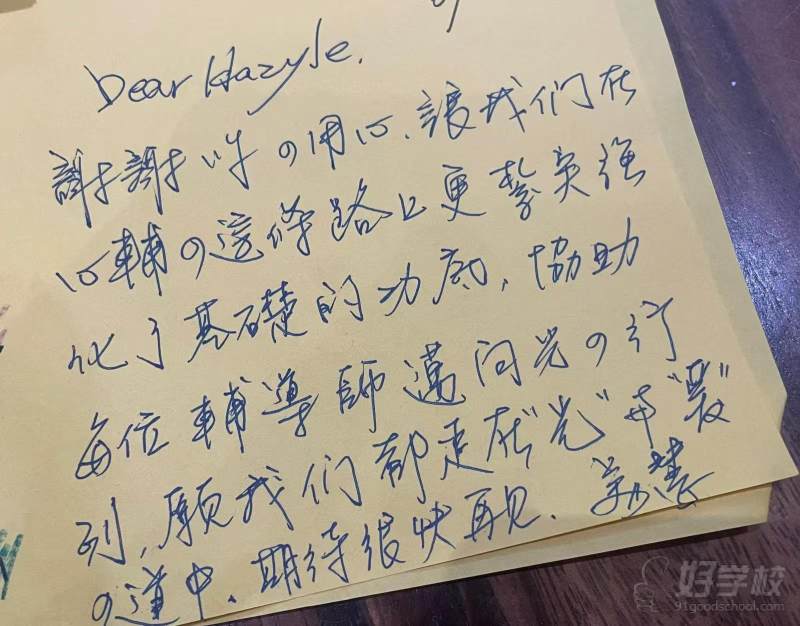 Dear Hazyle.
謝謝你の用心.讓我们在
心輔の這條路上更紮實強
化了基礎的功底,協助
每位輔導師邁向光の行
列,願我们都走在"光"与"愛"
の道中.期待很快再見.
好学校
91goodschool.com